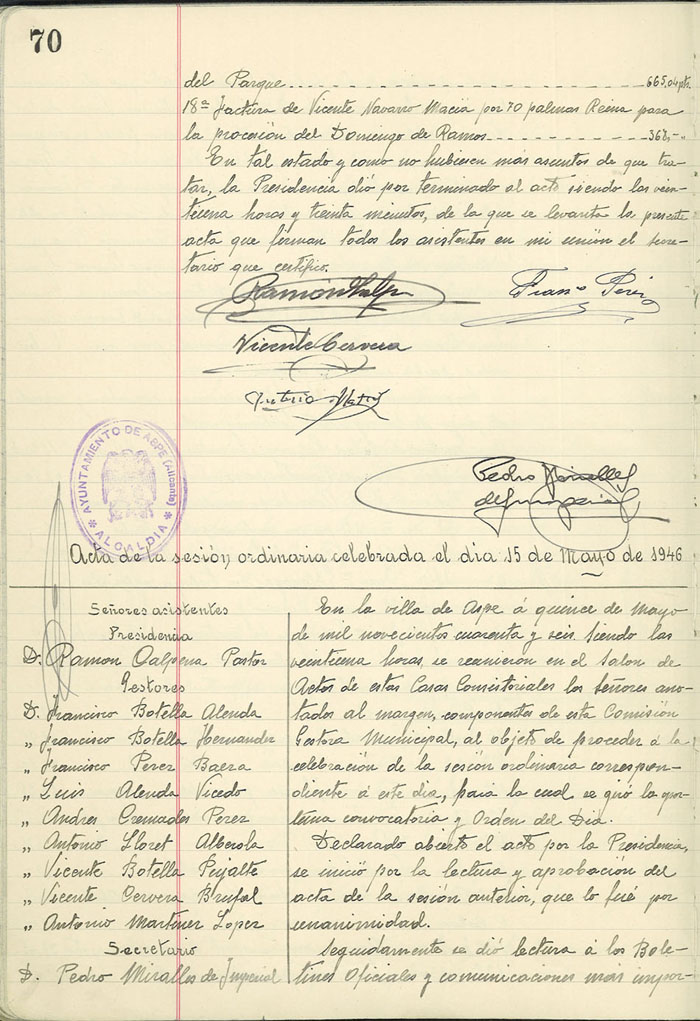 70
del Parque ---------- 665,04 pts.
18ª factura de Vicente Navarro Maciá por 70 palmas Reina para
la procesión del Domingo de Ramos ---------- 367,- "
En tal estado y como no hubiesen más asuntos de que tra-
tar, la Presidencia dió por terminado el acto siendo las vein-
ticena horas y treinta minutos, de la que se levanta la presente
acta que firman todos los asistentes en mi unión el secre-
tario que certifico.
Ramón Calpe
Franco Perez
Vicente Cervera
Pedro Miralles
de Imperial
AYUNTAMIENTO DE ASPE (Alicante)
* ALCALDIA *
Acta de la sesión ordinaria celebrada el dia 15 de Mayo de 1946
Señores asistentes
Presidencia
D. Ramon Calpena Pastor
Gestores
D. Francisco Botella Alenda
" Francisco Botella Hernandez
" Francisco Perez Baeza
" Luis Alenda Vicedo
" Andres Cremades Perez
" Antonio Lloret Alberola
" Vicente Botella Pujalte
" Vicente Cervera Brufal
" Antonio Martinez Lopez
Secretario
D. Pedro Miralles de Imperial
En la villa de Aspe á quince de Mayo
de mil novecientos cuarenta y seis. Siendo las
veinticena horas, se reunieron en el Salon de
Actos de estas Casas Consistoriales los señores ano-
tados al margen, componentes de esta Comisión
Gestora Municipal, al objeto de proceder á la
celebración de la sesión ordinaria correspon-
diente á este día, para la cual se giró la opor-
tuna convocatoria y Orden del Día.
Declarado abierto el acto por la Presidencia,
se inició por la lectura y aprobación del
acta de la sesión anterior, que lo fué por
unanimidad.
Seguidamente se dió lectura á los Bole-
tines Oficiales y comunicaciones más impor-